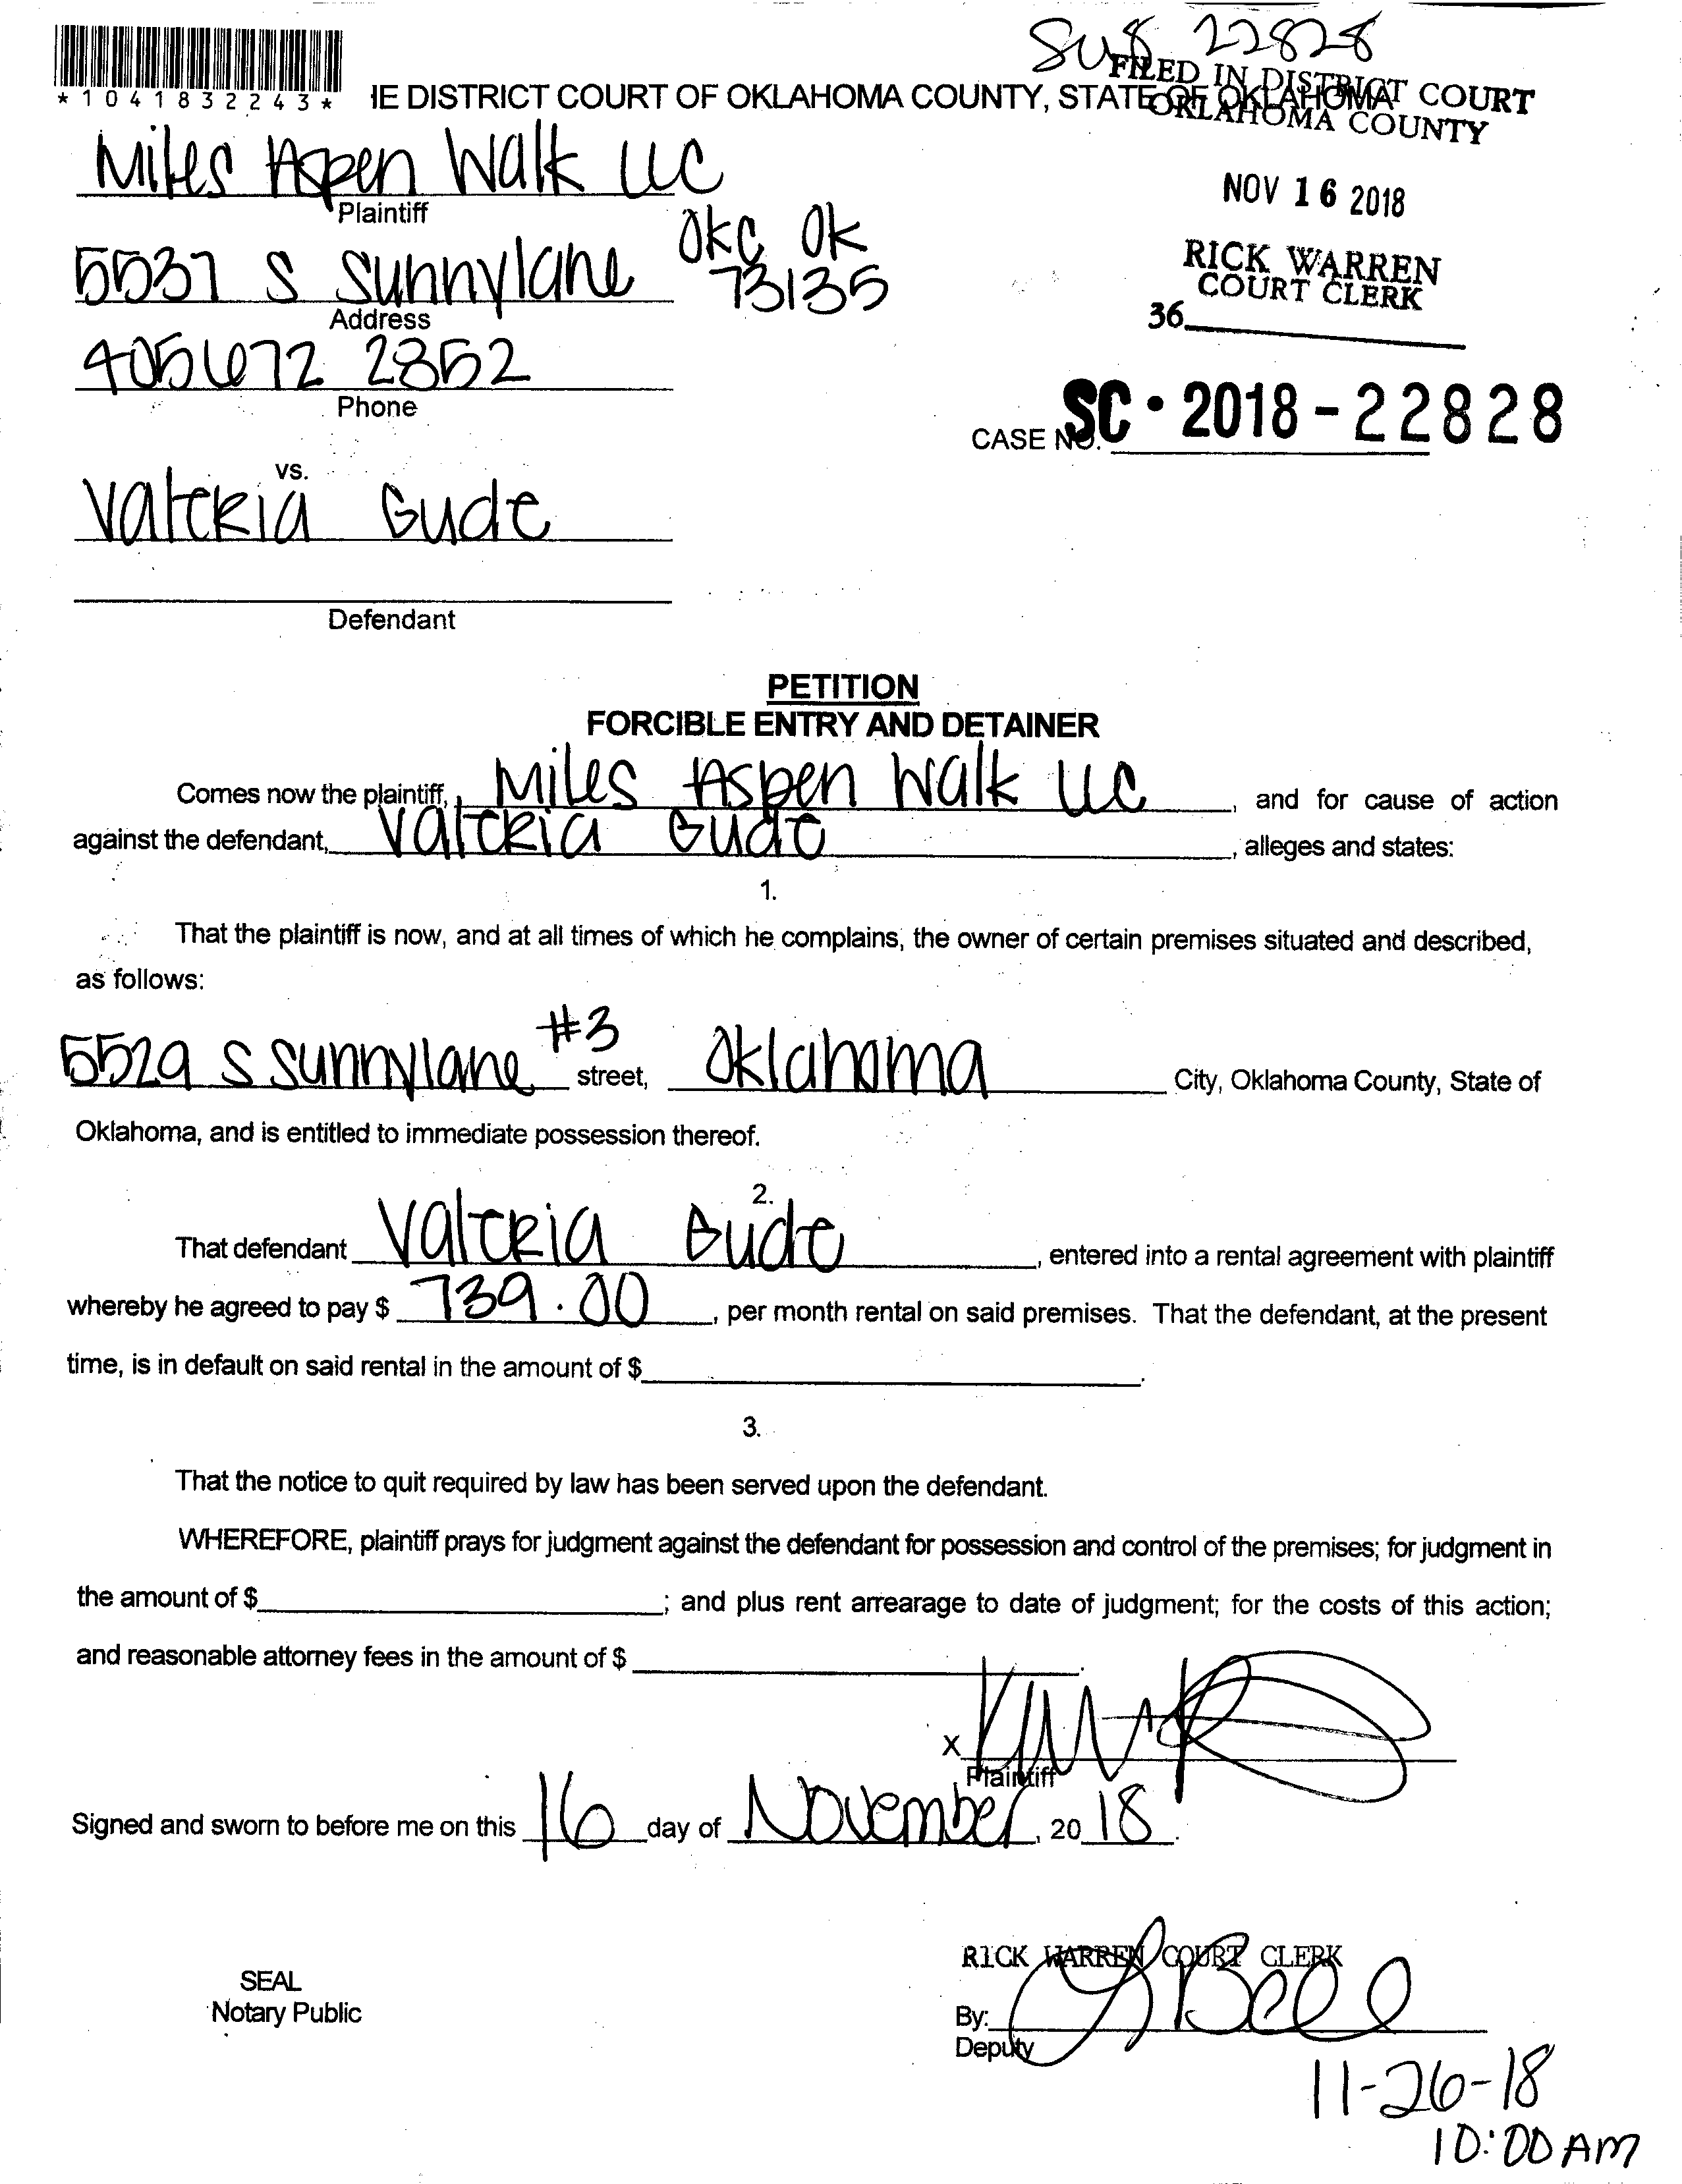 22828
FILED IN DISTRICT COURT
OKLAHOMA COUNTY
*1041832243*
IE DISTRICT COURT OF OKLAHOMA COUNTY, STATE OF OKLAHOMA
Miles Aspen Walk LLC
Plaintiff
NOV 16 2018
OKC OK
73135
5537 S Sunnylane
Address
RICK WARREN
COURT CLERK
36
405 672 2852
Phone
CASE NO. SC-2018-22828
vs.
Valeria Gude
Defendant
PETITION
FORCIBLE ENTRY AND DETAINER
Comes now the plaintiff, Miles Aspen Walk LLC, and for cause of action
against the defendant, Valeria Gude, alleges and states:
1.
That the plaintiff is now, and at all times of which he complains, the owner of certain premises situated and described,
as follows:
5529 S Sunnylane #3 street, Oklahoma City, Oklahoma County, State of
Oklahoma, and is entitled to immediate possession thereof.
2.
That defendant Valeria Gude, entered into a rental agreement with plaintiff
whereby he agreed to pay $ 739.00, per month rental on said premises. That the defendant, at the present
time, is in default on said rental in the amount of $.
3.
That the notice to quit required by law has been served upon the defendant.
WHEREFORE, plaintiff prays for judgment against the defendant for possession and control of the premises; for judgment in
the amount of $; and plus rent arrearage to date of judgment; for the costs of this action;
and reasonable attorney fees in the amount of $.
X
Plaintiff
Signed and sworn to before me on this 16 day of November, 2018.
RICK WARREN COURT CLERK
SEAL
Notary Public
By: Bell
Deputy
11-26-18
10:00 AM